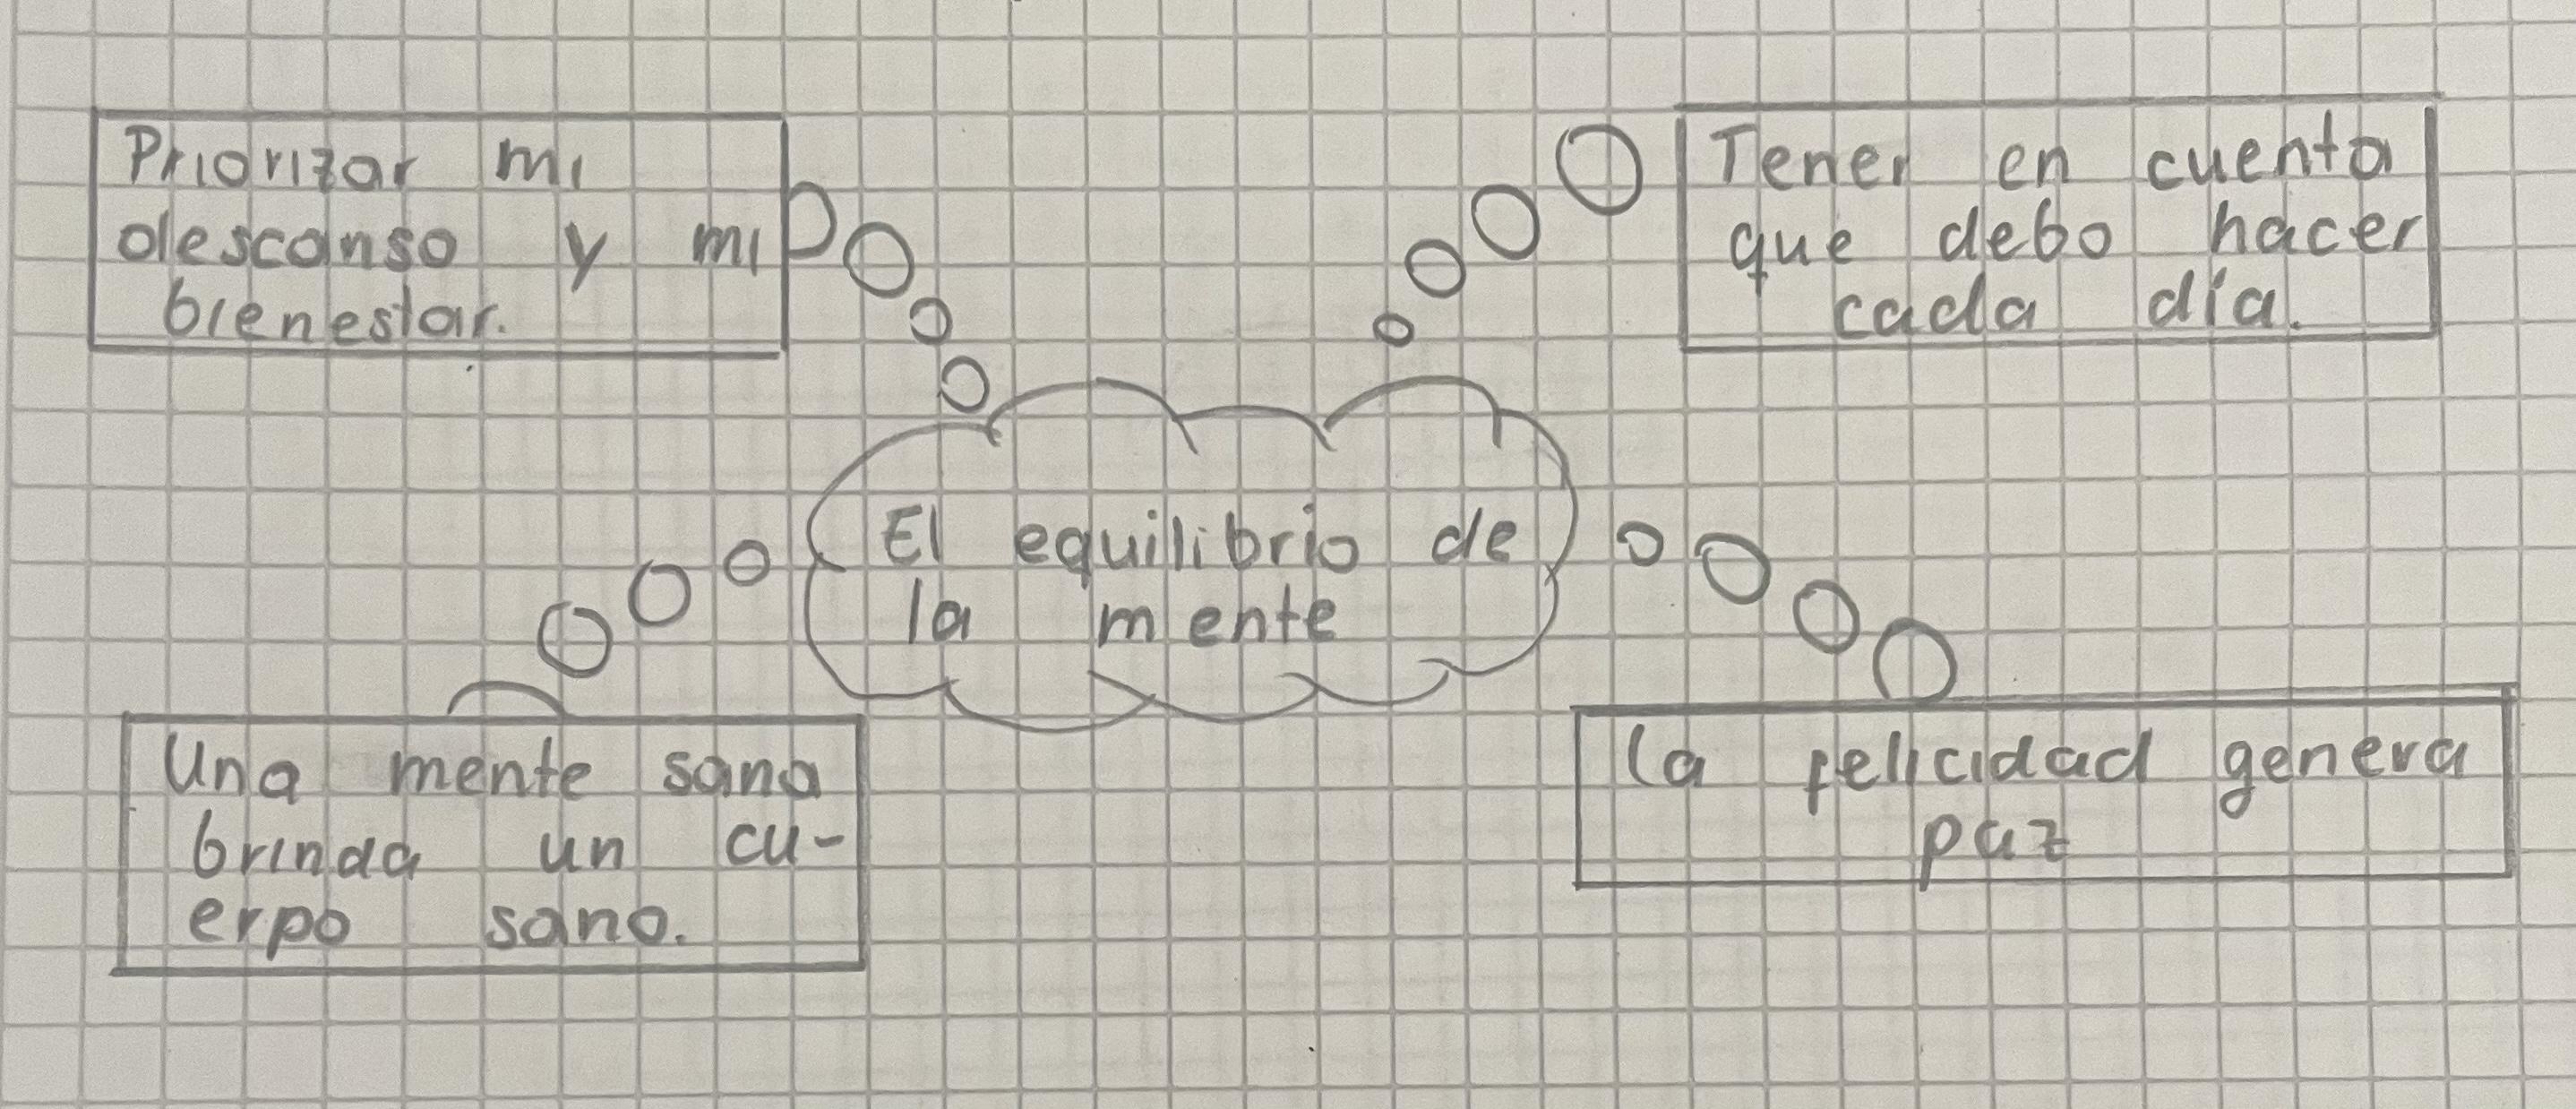 Priorizar mi
descanso y mi
bienestar.
Tener en cuenta
que debo hacer
cada día.
El equilibrio de
la mente
Una mente sana
brinda un cu-
erpo sano.
La felicidad genera
paz